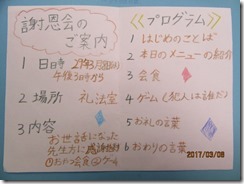 謝恩会の
ご案内
1 日時 29年3月8日(水)
午後3時から
2 場所 礼法室
3 内容
お世話になった
先生方に感謝を
会食 ゲーム
≪プログラム≫
1 はじめのことば
2 本日のメニューの紹介
3 会食
4 ゲーム(犯人は誰だ)
5 お礼の言葉
6 おわりの言葉
2017/03/08